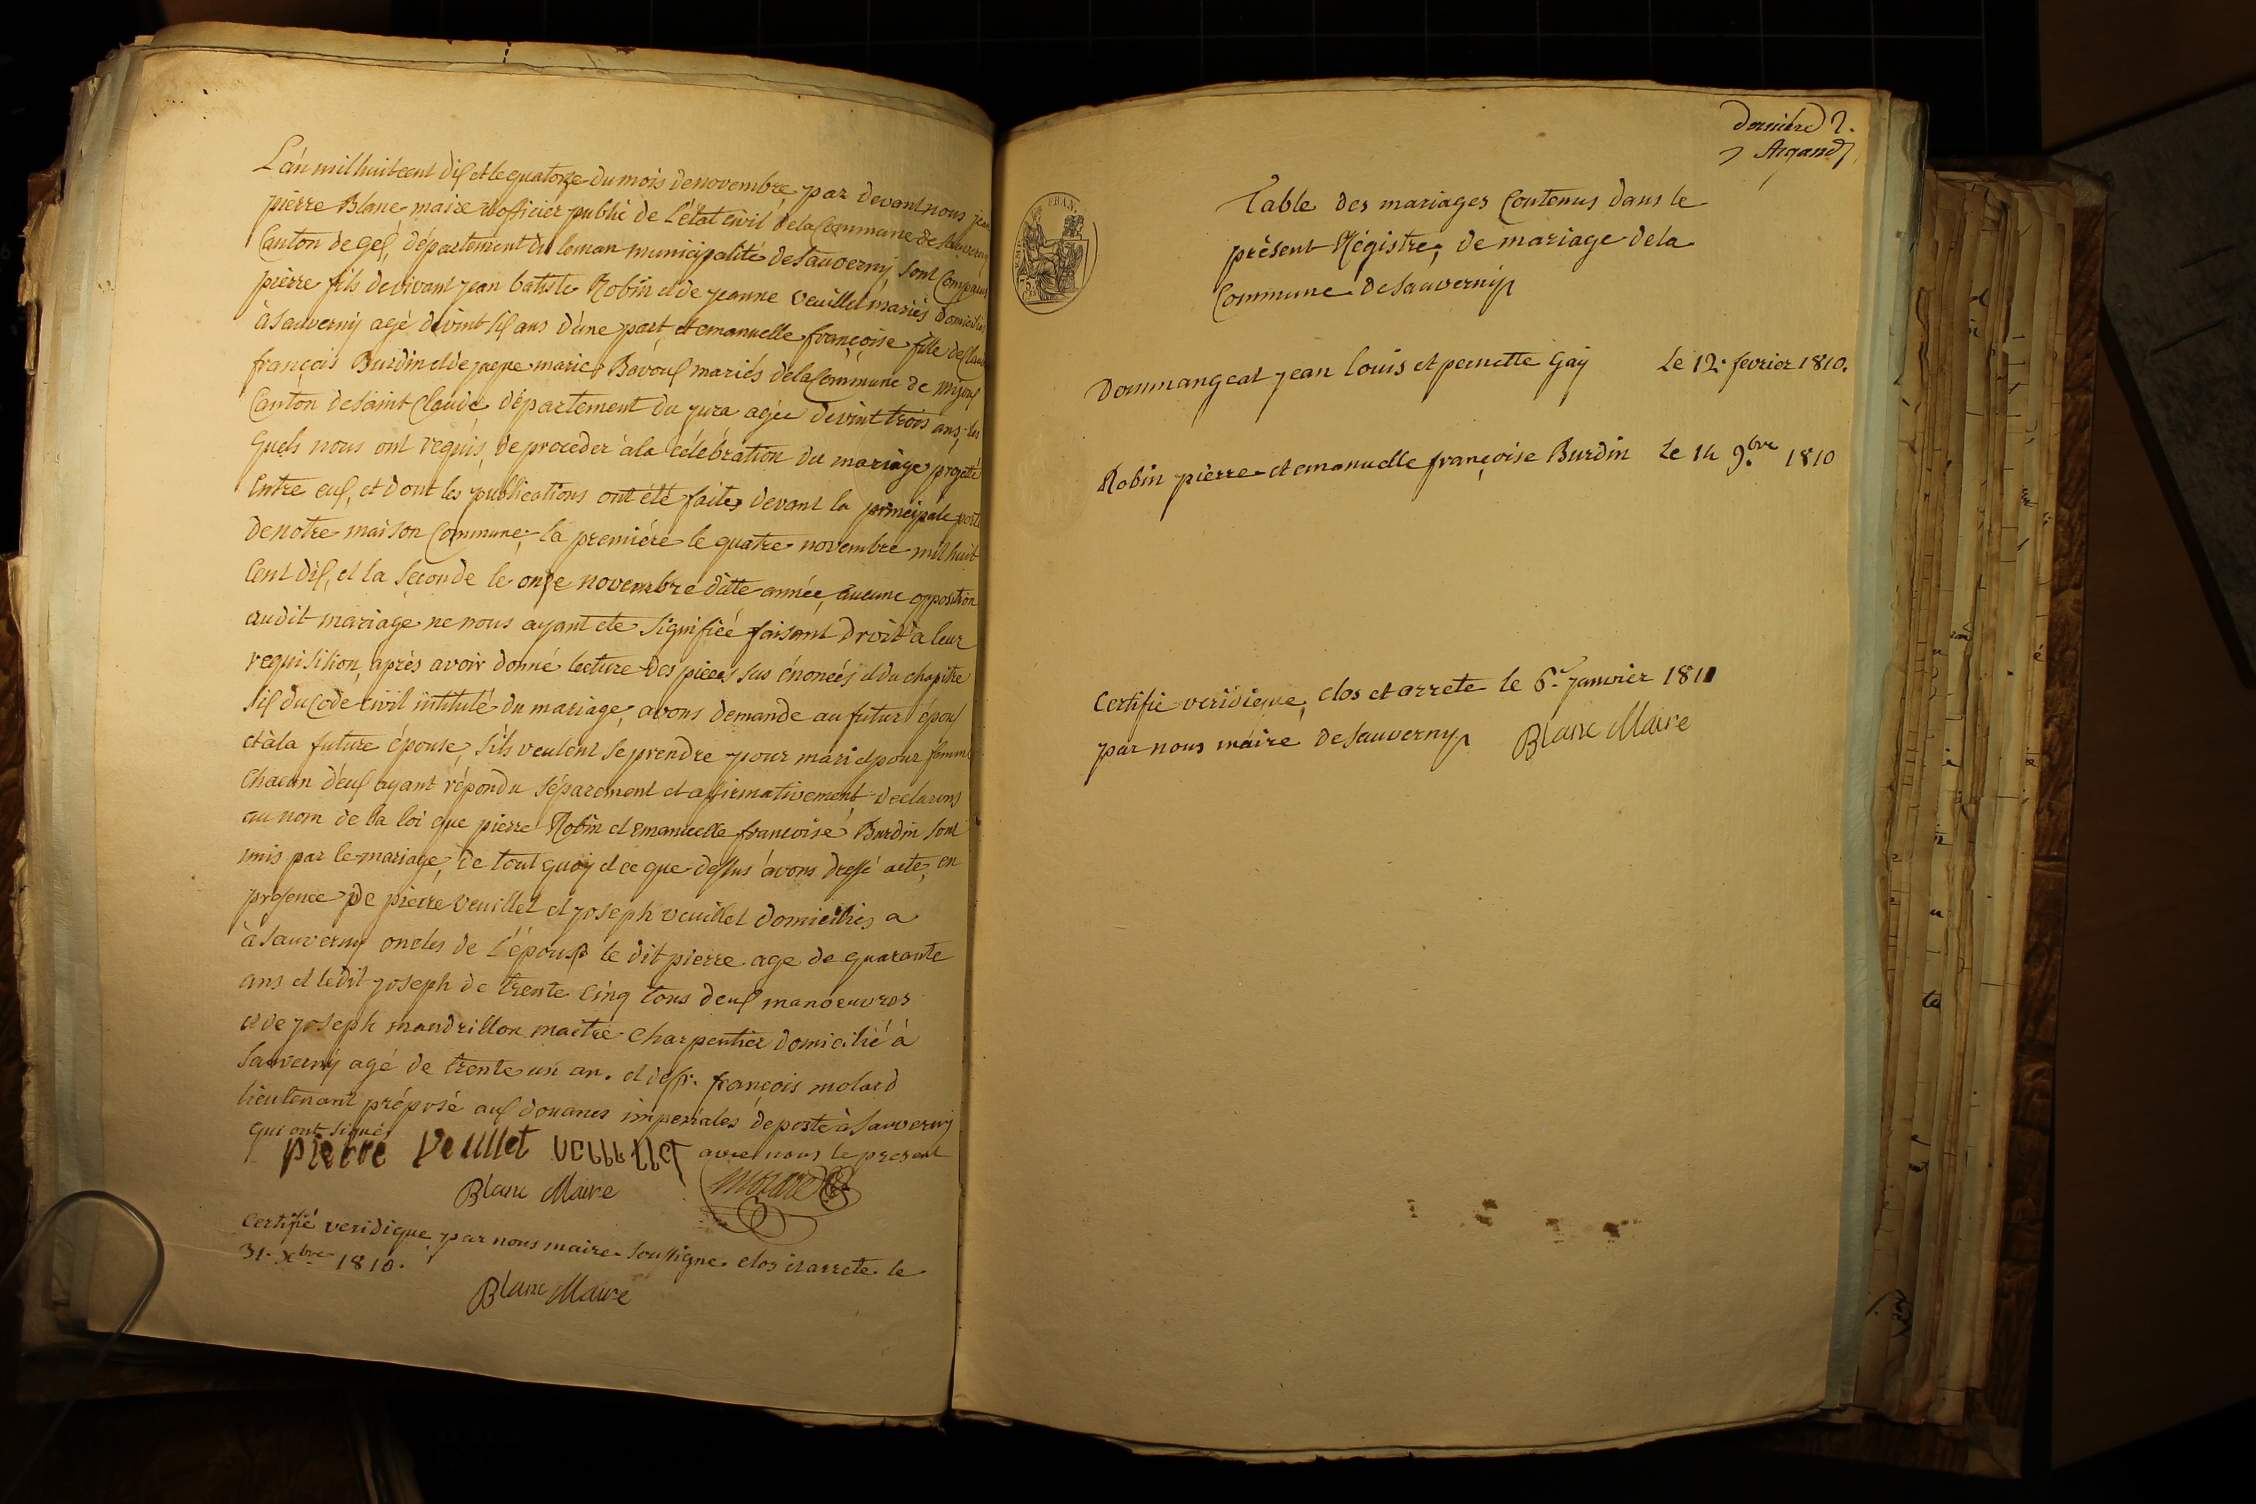 L'an mil huit cent dix et le quatorze du mois de novembre par devant nous jean
pierre Blanc maire et officier public de L'état civil de la Commune de Sauverny
Canton de gex, département du leman municipalité de Sauverny sont Comparus
pierre fils de vivant jean batiste Robin et de jeanne veuillet mariés Domiciliés
à Sauverny agé de vint six ans d'une part, et emanuelle françoise fille de Claude
françois Burdin et de marie Bavoux mariés de la Commune de mijoux
Canton de Saint Claude département du jura agée de vint trois ans, les
quels nous ont requis de proceder à la célébration du mariage projetté
Entre eux, et dont les publications ont été faites devant la principale porte
de notre maison Commune, la première le quatre novembre mil huit
Cent dix, et la Seconde le onze novembre ditte année, aucune opposition
audit mariage ne nous ayant eté Signifiée faisant Droit à leur
requisition, après avoir donné lecture des pieces sus énoncées et du chapitre
Six du Code civil intitulé du mariage, avons demandé au futur époux
et à la future épouse, S'ils veulent Se prendre pour mari et pour femme
Chacun d'eux ayant répondu Séparement et affirmativement declarons
au nom de la loi que pierre Robin et emanuelle françoise Burdin sont
unis par le mariage, de tout quoy et ce que dessus avons dressé acte, en
presence de pierre veuillet et joseph veuillet domiciliés a
à Sauverny oncles de L'époux le dit pierre agé de quarante
ans et le dit joseph de trente Cinq tous deux manoeuvres
et de joseph mandrillon maître Charpentier domicilié à
Sauverny agé de trente un an. et de françois molard
lieutenant préposé aux douanes imperiales de poste à Sauverny
qui ont signé avec nous le present
pierre veuillet veuillet
Blanc Maire
Certifié veridique par nous maire Soussigné clos et arreté le
31. Xbre 1810.
Blanc Maire
dernière
Argand
Table des mariages Contenus dans le
présent Régistre, de mariage de la
Commune de Sauverny
Dommangeat jean louis et pernette Gay Le 12. fevrier 1810.
Robin pierre et emanuelle françoise Burdin Le 14 9.bre 1810
Certifié veridique, clos et arreté le 6. janvier 1811
par nous maire de Sauverny Blanc Maire